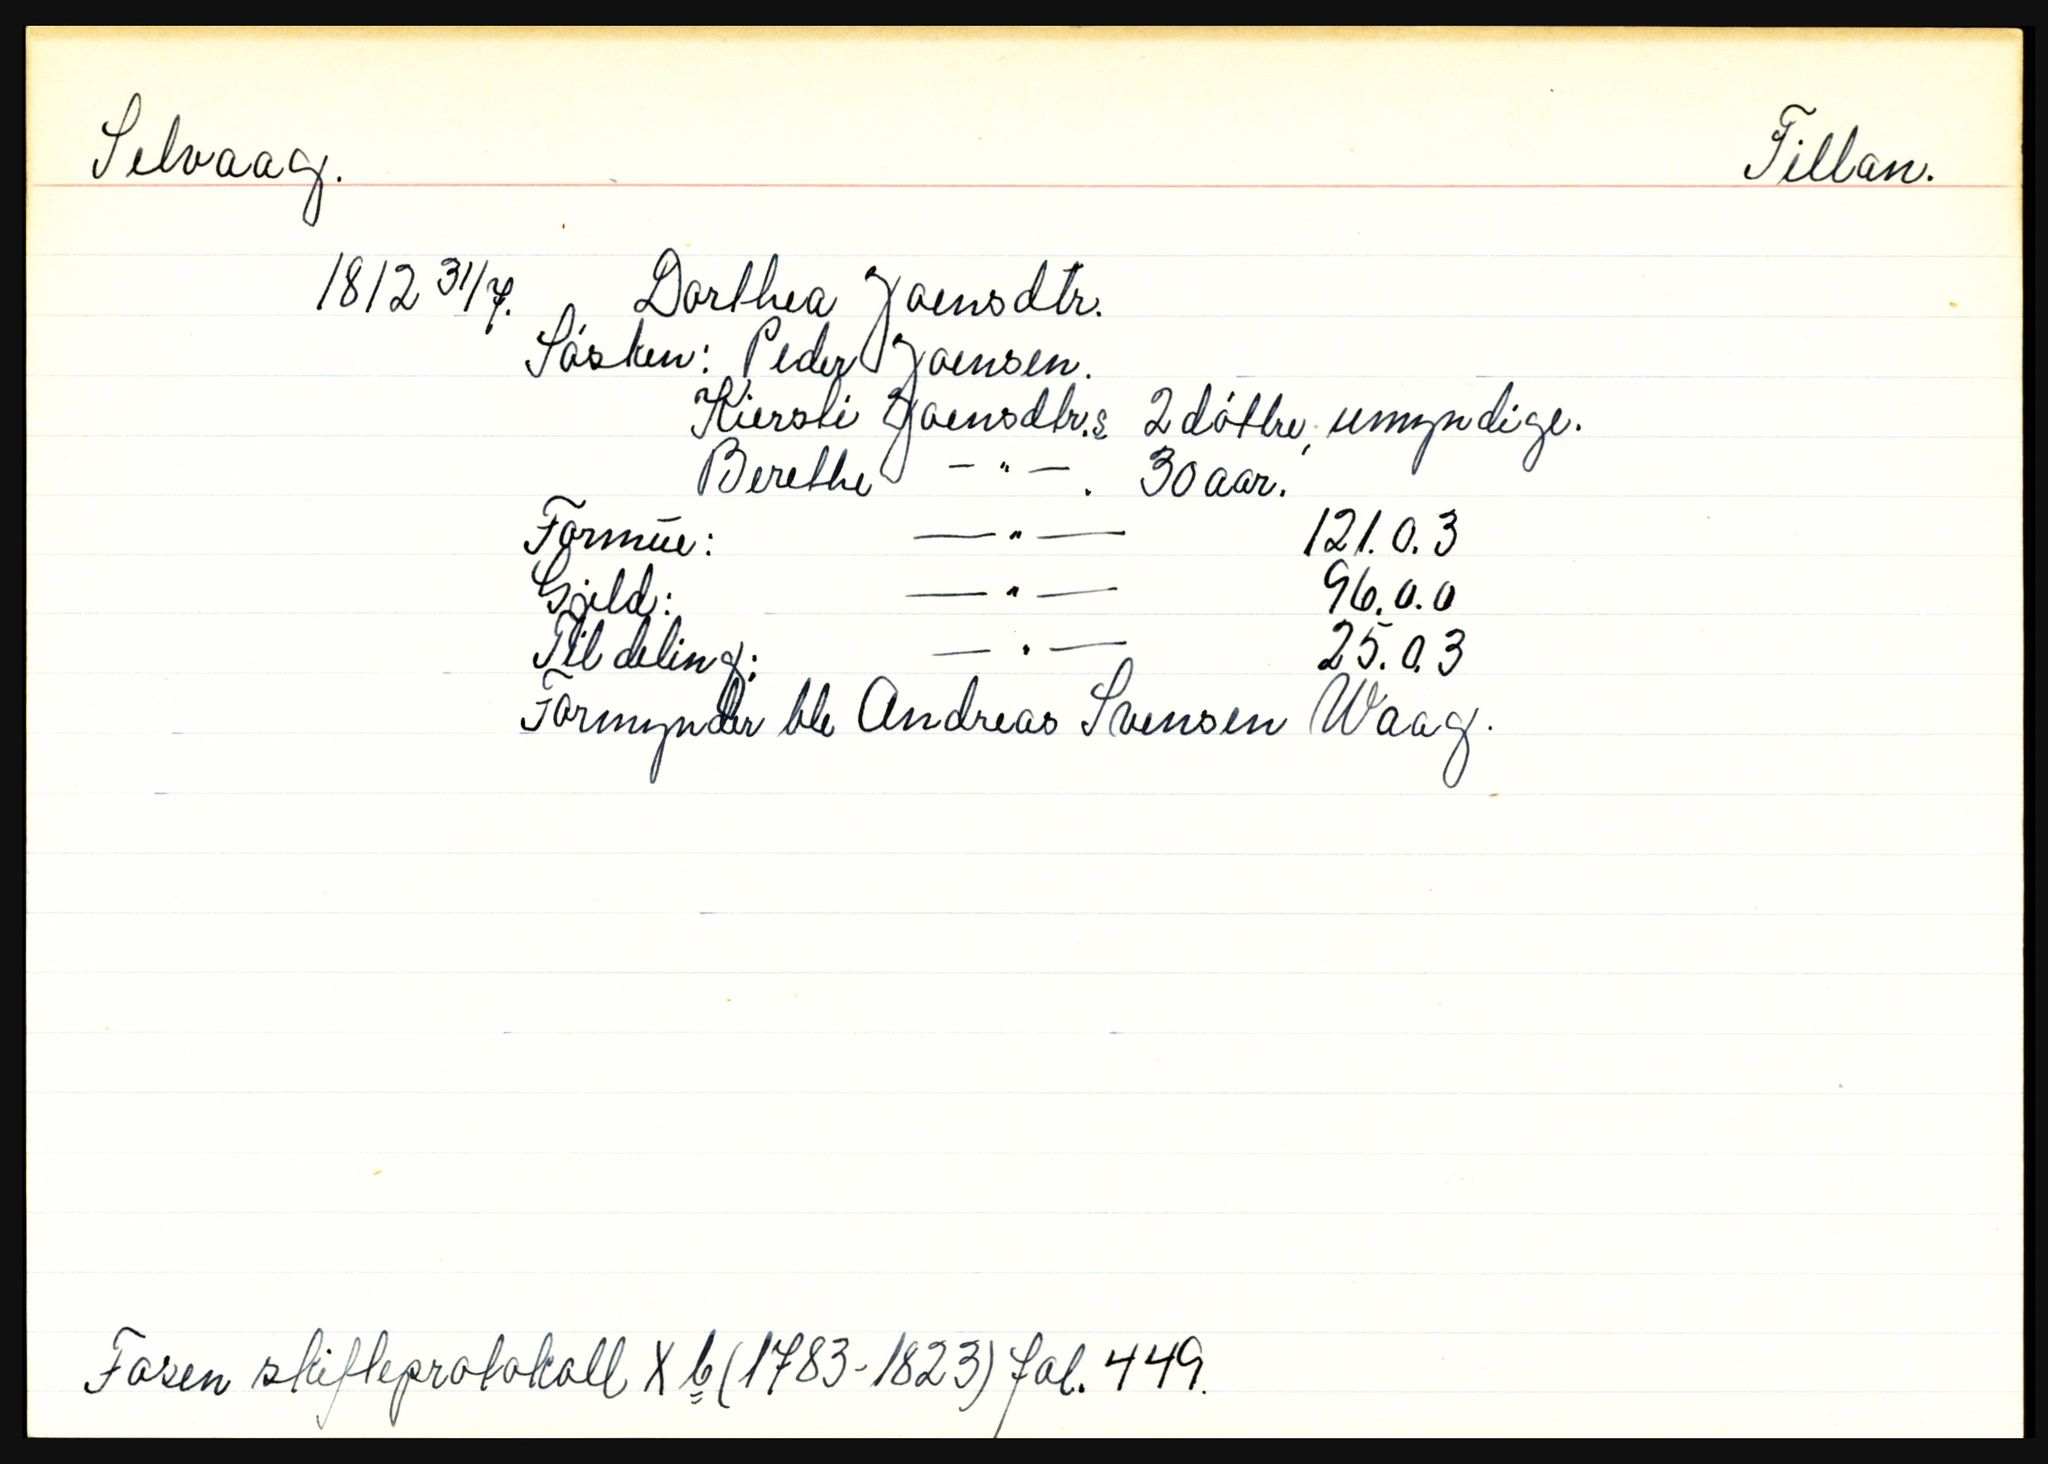 Selvaag. Fillan.
1812 31/7. Dorthea Joensdtr.
Søsken: Peder Joensen.
Kiersti Joensdtr.s 2 døttre, umyndige.
Berethe —"—. 30 aar.
Formūe: —"— 121.0.3
Gjeld: —"— 96.0.0
Til deling: —"— 25.0.3
Formynder ble Andreas Svensen Waag.
Fosen skifteprotokoll X b (1783-1823) fol. 449.